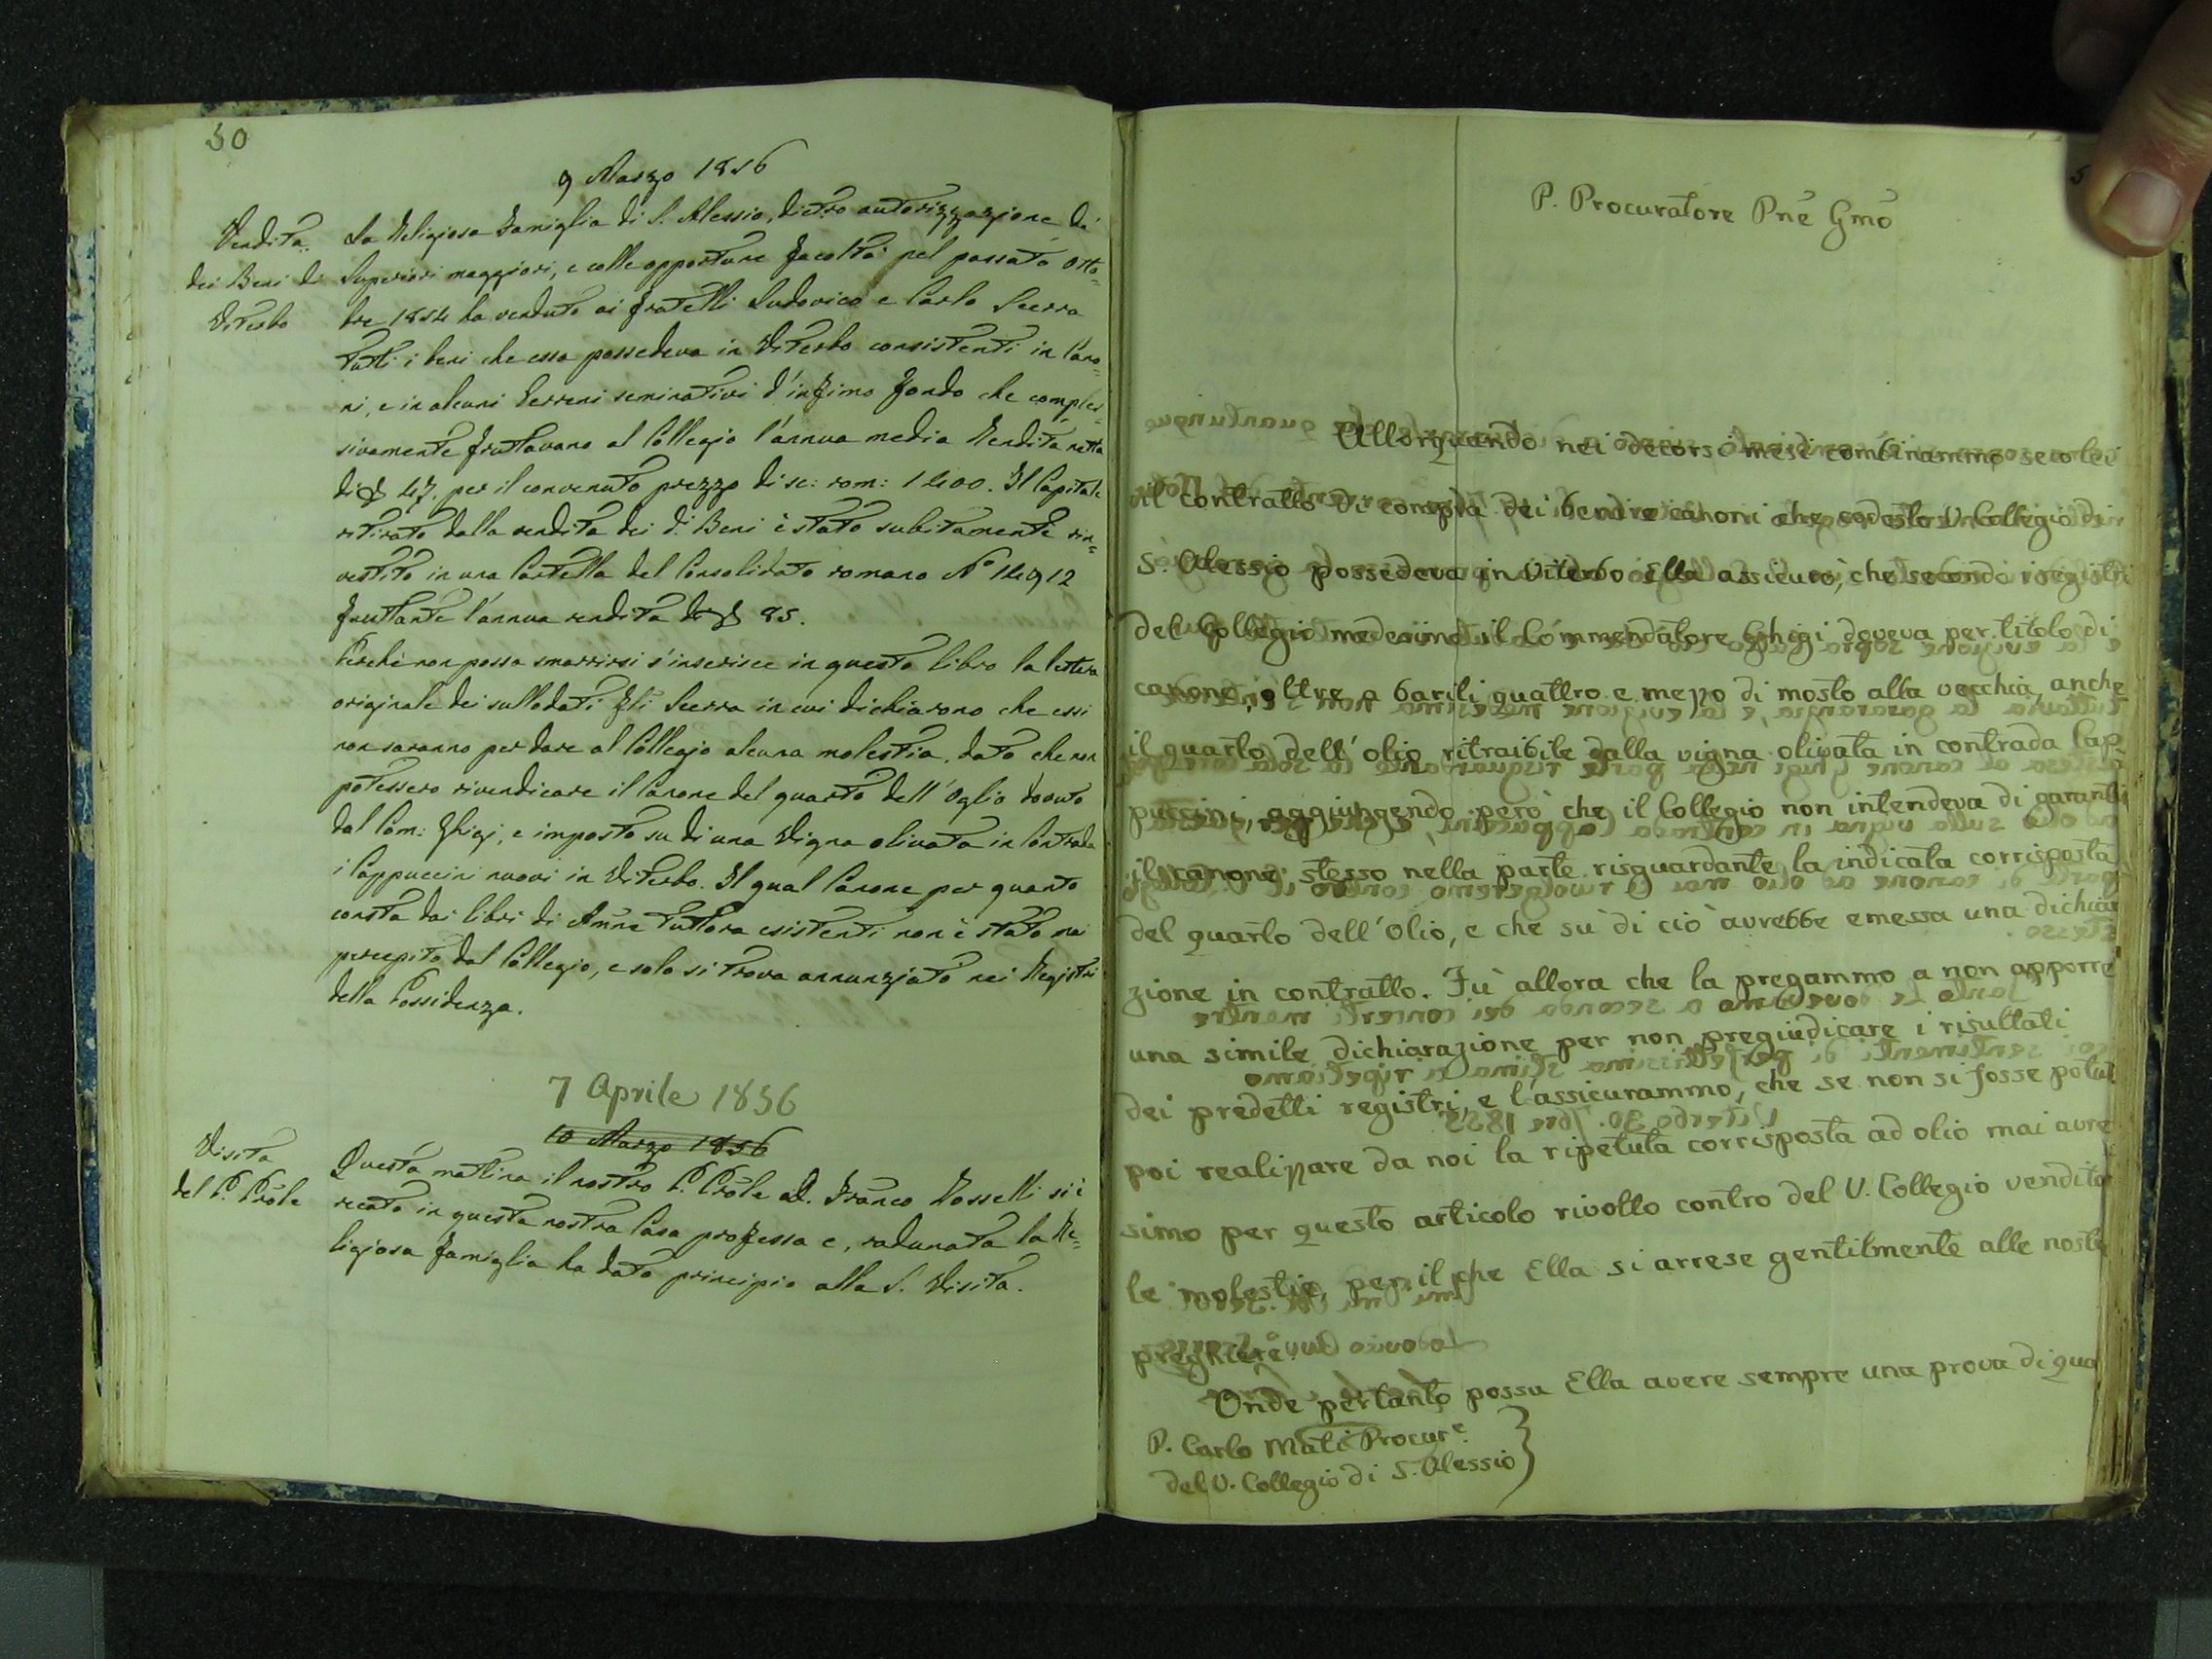 50
9 Marzo 1856
Vendita
dei Beni di
Viterbo
La Religiosa Famiglia di S. Alessio, dietro autorizzazione de'
Superiori maggiori, e colle opportune facoltà nel passato Otto=
bre 1854 ha venduto ai fratelli Ludovico e Carlo Scerra
tutti i beni che essa possedeva in Viterbo consistenti in Cano=
ni, e in alcuni terreni seminativi d'infimo fondo che comples=
sivamente fruttavano al Collegio l'annua media Rendita netta
di 47, per il convenuto prezzo di sc: rom: 1400. Il Capitale
ritirato dalla vendita dei d.i Beni è stato subitamente rin=
vestito in una Cartella del Consolidato romano N° 14912
fruttante l'annua rendita di 85.
Perchè non possa smarrirsi s'inserisce in questo libro la lettera
originale dei sullodati Flli Scerra in cui dichiarono che essi
non saranno per dare al Collegio alcuna molestia, dato che non
potessero rivendicare il Canone del quarto dell'Oglio dovuto
dal Com: Ghigi, e imposto su di una Vigna olivata in Contrada
i Cappuccini nuovi in Viterbo. Il qual Canone per quanto
consta dai libri di Amne tuttora esistenti non è stato mai
percepito dal Collegio, e solo si trova annunziato nei Registri
della Possidenza.
7 Aprile 1856
10 Marzo 1856
Visita
del P. Prõle
Questa mattina il nostro P. Prõle D. Franco Rosselli si è
recato in questa nostra Casa professa e, radunata la Re=
ligiosa famiglia ha dato principio alla S. Visita.
P. Procuratore Pne Gmo
Allorquando nei decorsi mesi combinammo seco lei
il contratto di compra dei beni e canoni che codesto V. Collegio di
S. Alessio possedeva in Viterbo Ella assicurò, che secondo i registri
del Collegio medesimo il Commendatore Ghigi doveva per titolo di
canone, oltre a barili quattro e mezzo di mosto alla vecchia, anche
il quarto dell'olio ritraibile dalla vigna olivata in contrada Cap-
puccini, aggiungendo però che il Collegio non intendeva di garantir
il canone stesso nella parte risguardante la indicata corrisposta
del quarto dell'Olio, e che su di ciò avrebbe emessa una dichiara
zione in contratto. Fu allora che la pregammo a non apporre
una simile dichiarazione per non pregiudicare i risultati
dei predetti registri, e l'assicurammo, che se non si fosse potut
poi realizzare da noi la ripetuta corrisposta ad olio mai avres
simo per questo articolo rivolto contro del V. Collegio vendito
le molestie, per il che Ella si arrese gentilmente alle nostre
preghiere.
Onde pertanto possa Ella avere sempre una prova di qua
P. Carlo Mati Procur.e
del V. Collegio di S. Alessio